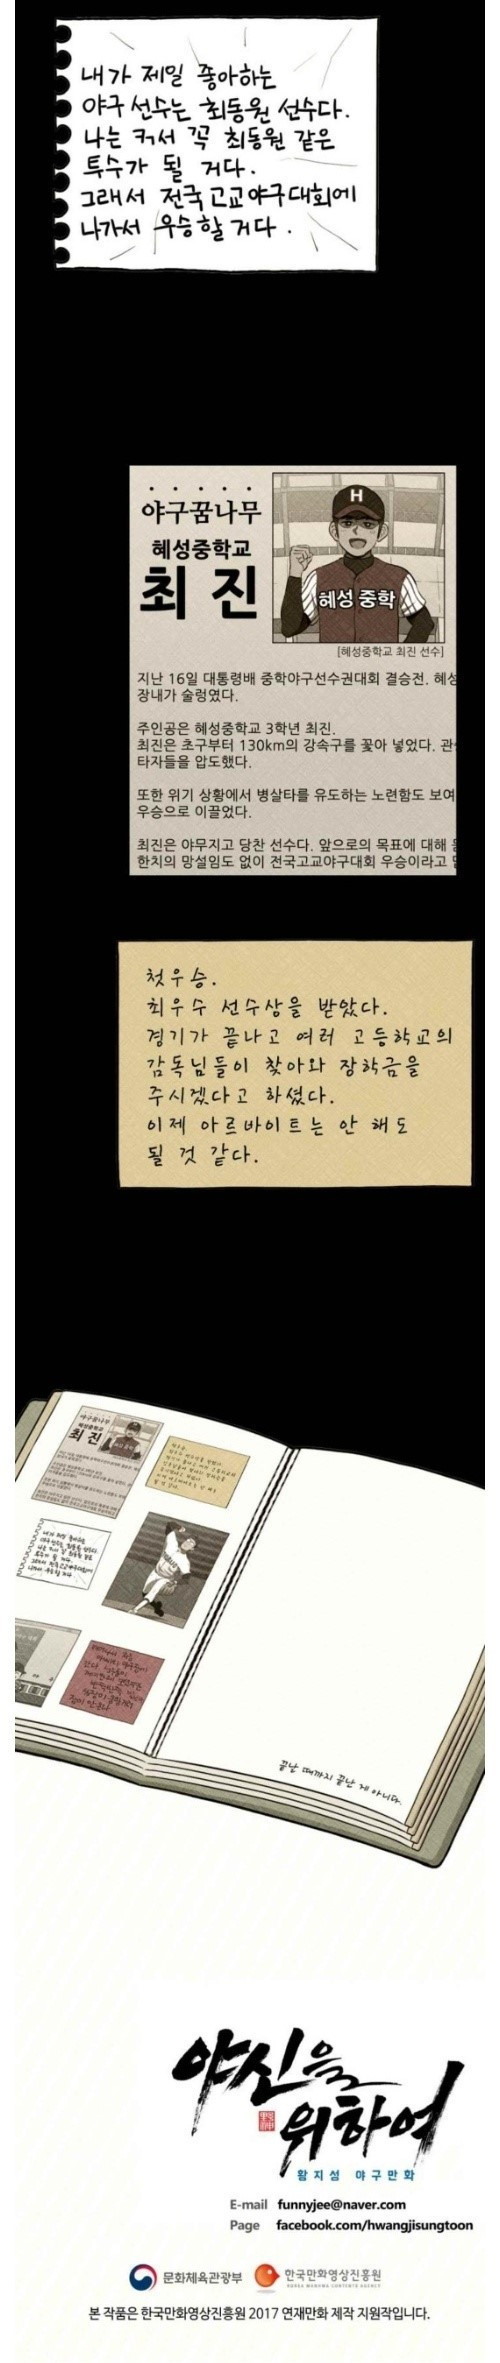 내가 제일 좋아하는
야구 선수는 최동원 선수다.
나는 커서 꼭 최동원 같은
투수가 될 거다.
그래서 전국고교야구대회에
나가서 우승할 거다.
야구꿈나무
혜성중학교
최 진
H
혜성 중학
[혜성중학교 최진 선수]
지난 16일 대통령배 중학야구선수권대회 결승전. 혜성
장내가 술렁였다.
주인공은 혜성중학교 3학년 최진.
최진은 초구부터 130km의 강속구를 꽂아 넣었다.
타자들을 압도했다.
또한 위기 상황에서 병살타를 유도하는 노련함도 보여
우승으로 이끌었다.
최진은 야무지고 당찬 선수다. 앞으로의 목표에 대해
한치의 망설임도 없이 전국고교야구대회 우승이라고
첫 우승.
최우수 선수상을 받았다.
경기가 끝나고 여러 고등학교의
감독님들이 찾아와 장학금을
주시겠다고 하셨다.
이제 아르바이트는 안 해도
될 것 같다.
야구꿈나무
혜성중학교
최 진
내가 제일 좋아하는
야구 선수는 최동원 선수다.
나는 커서 꼭 최동원 같은
투수가 될 거다.
그래서 전국고교야구대회에
나가서 우승할 거다.
끝날 때까지 끝난 게 아니다.
야신을
위하여
황지성 야구만화
E-mail funnyjee@naver.com
Page facebook.com/hwangjisungtoon
문화체육관광부 한국만화영상진흥원
KOREA MANHWA CONTENTS AGENCY
본 작품은 한국만화영상진흥원 2017 연재만화 제작 지원작입니다.